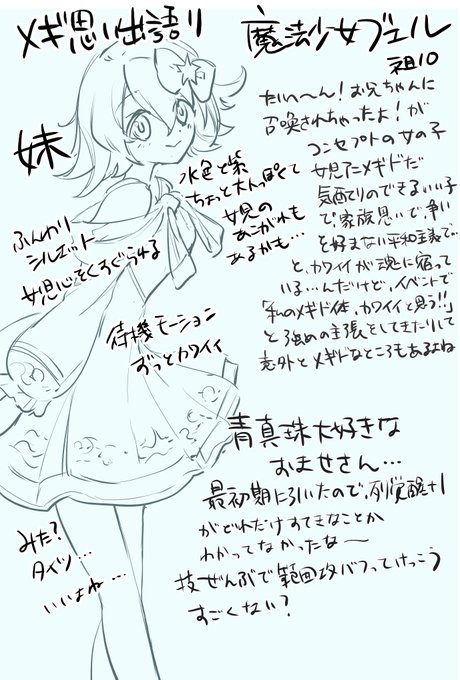 メギ思い出語り
魔法少女ブエル
祖10
たいへ〜ん！お兄ちゃんに
召喚されちゃったよ！が
コンセプトの女の子
女児アニメギドだ
気配りのできるいい子
で、家族思いで、争い
を好まない平和主義で…
と、カワイイが魂に宿って
いる…んだけど、イベントで
「私のメギド体、カワイイと思う!!」
と強めの主張をしてきたりして
意外とメギドなところもあるよね
妹
水色と紫
ちょっと大人っぽくて
女児の
あこがれも
あるかも…
ふんわり
シルエット
女児心をくすぐられる
待機モーション
ずっとカワイイ
青真珠大好きな
おませさん…
最初期に引いたので、列覚醒+1
がどれだけすてきなことか
わかってなかったな〜
技ぜんぶで範囲攻バフってけっこう
すごくない？
みた？
タイツ…
いいよね…